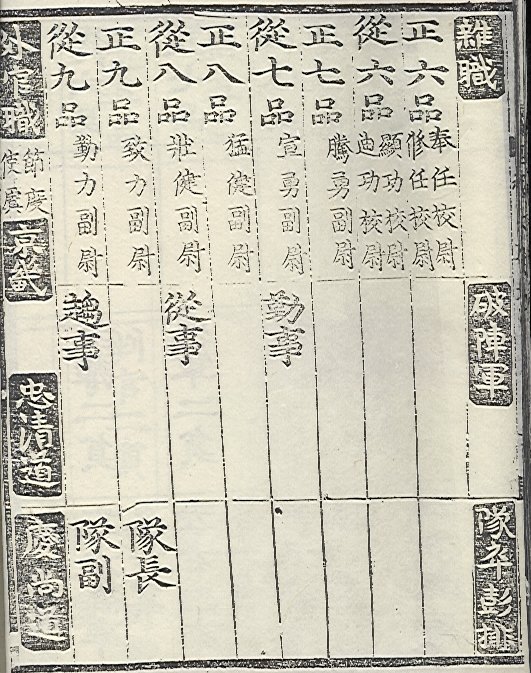 雜職
破陣軍
隊卒彭排
正六品
奉任校尉
修任校尉
從六品
顯功校尉
迪功校尉
正七品
騰勇副尉
從七品
宣勇副尉
勤事
正八品
猛健副尉
從八品
壯健副尉
從事
正九品
致力副尉
隊長
從九品
勤力副尉
趨事
隊副
外官職
節度
使虞
京畿
忠清道
慶尚道